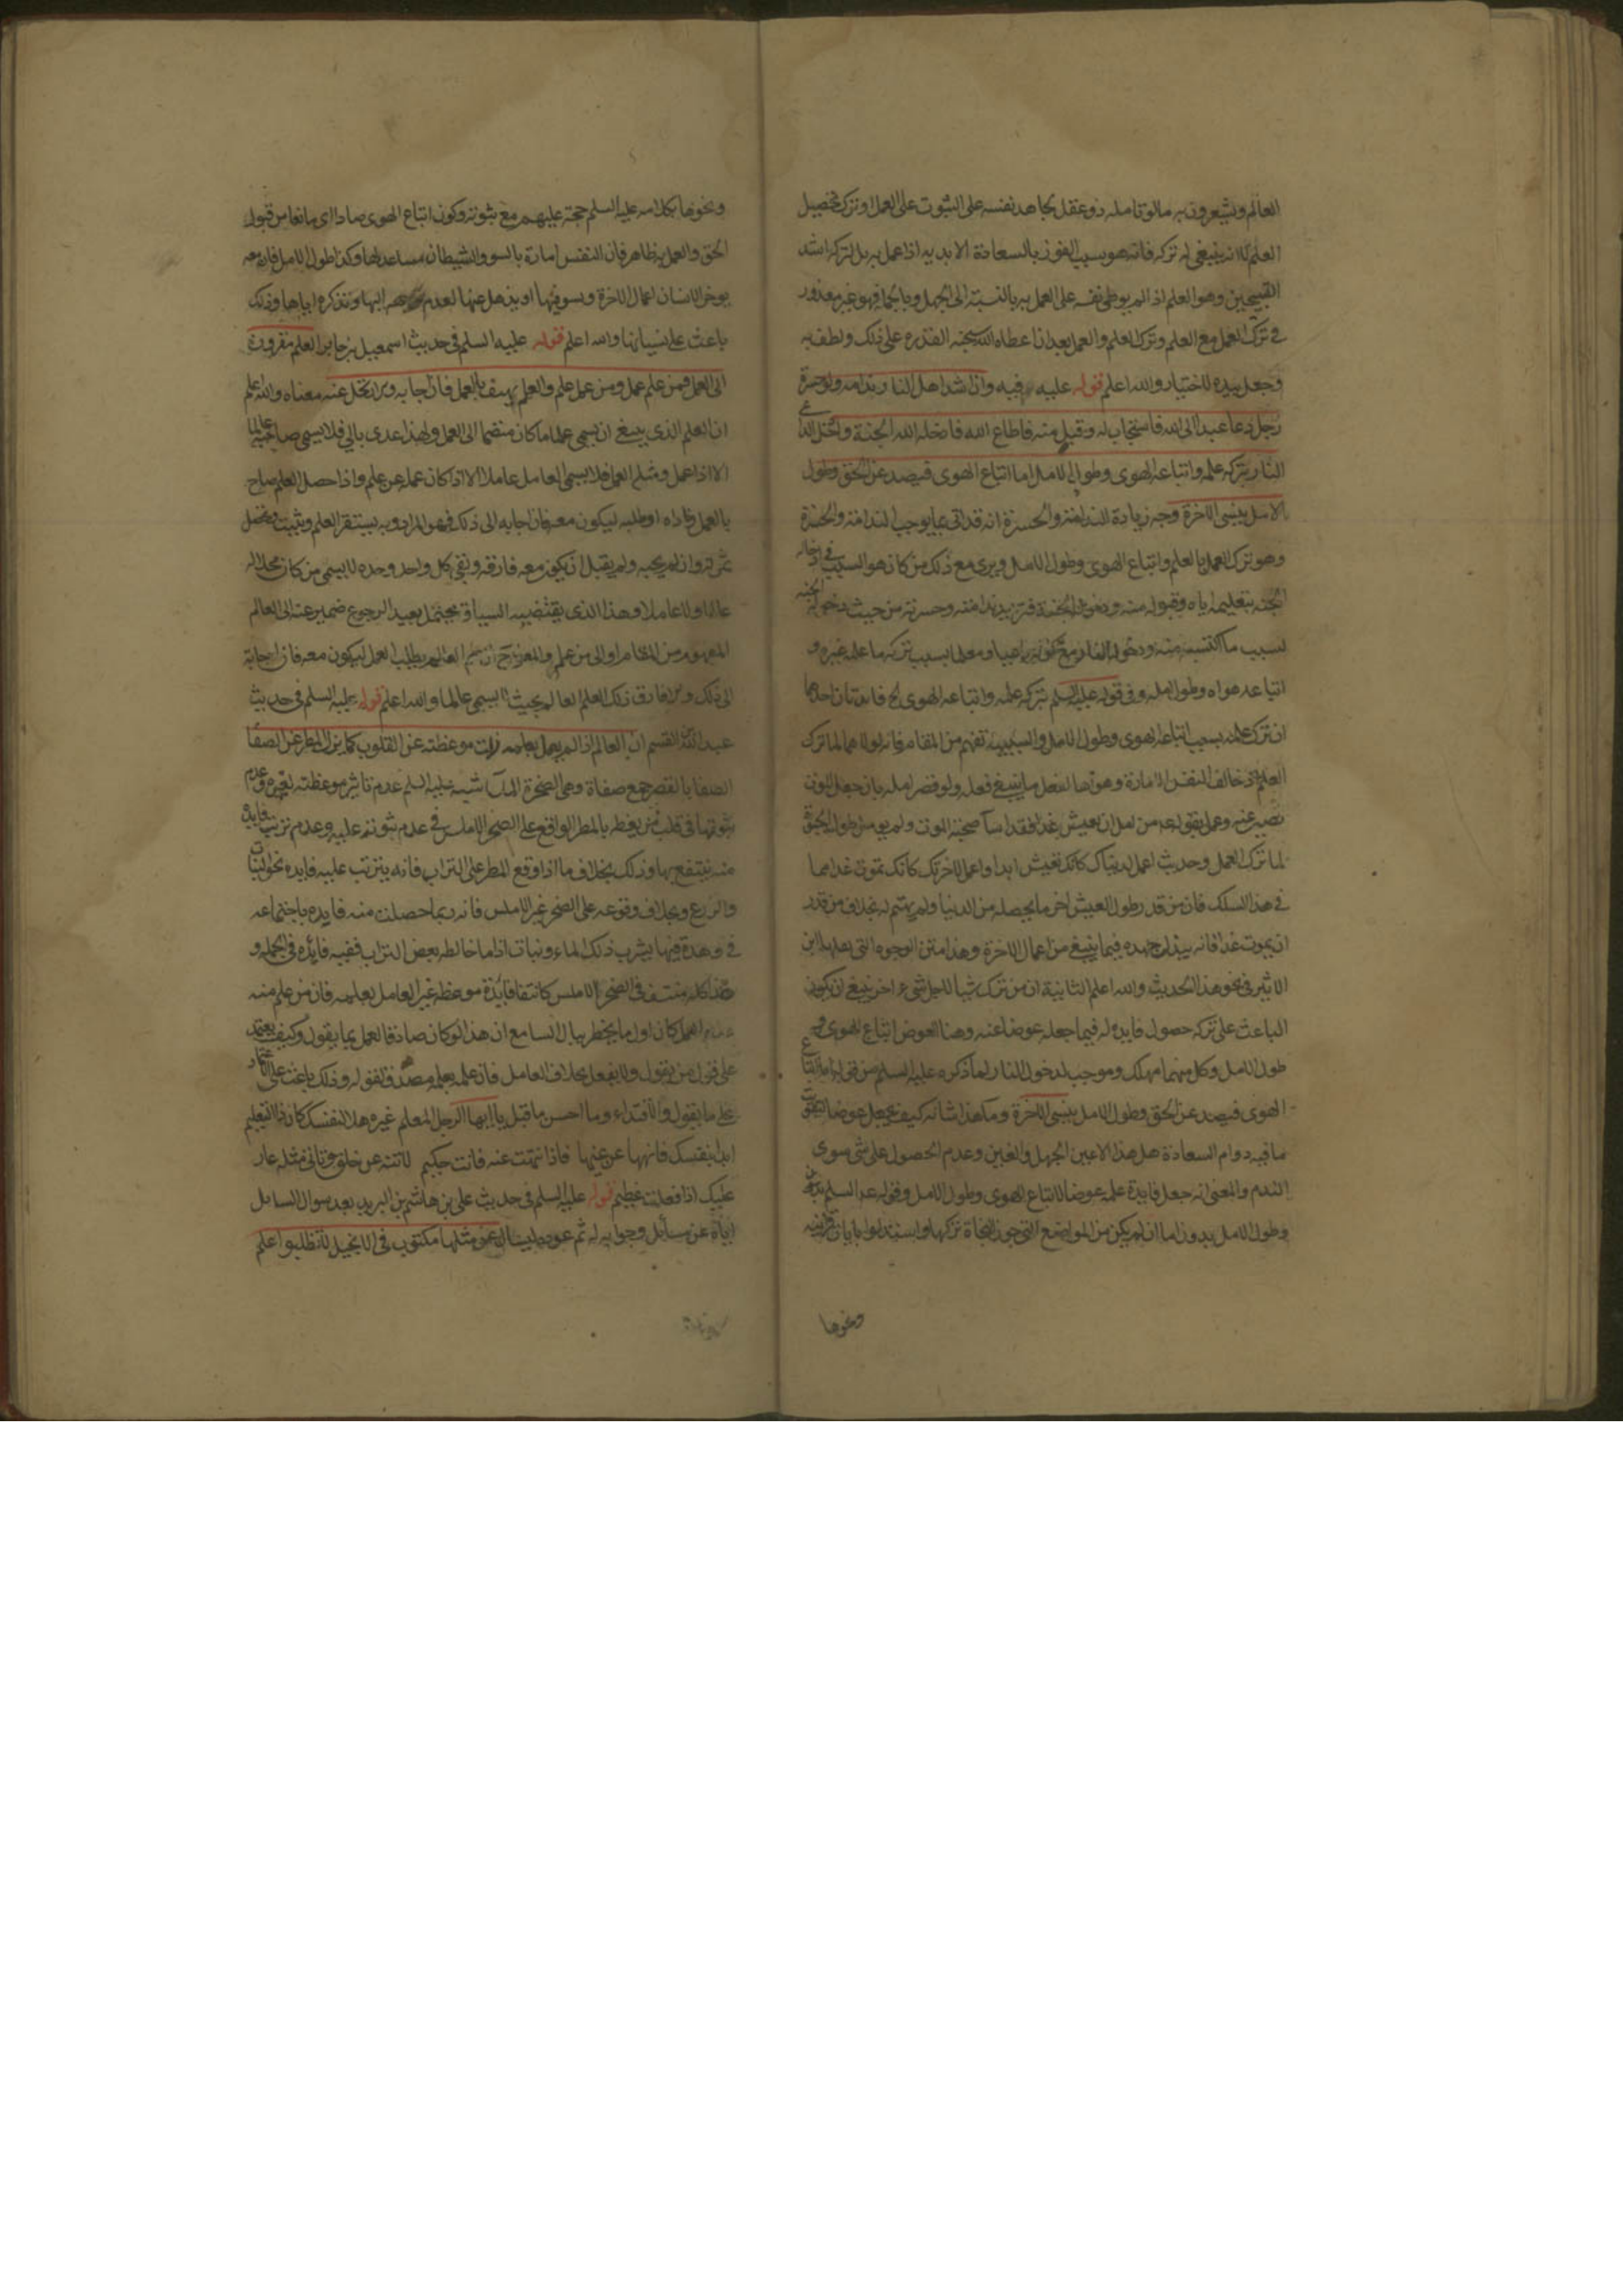 العالم ويشعرون به مالو تامله ذو عقل يجاهد نفسه على الثبوت على العمل او ترك تحصيل
العلم لانه ينبغي له تركه فانه هو سبب الفوز بالسعادة الابديه اذا عمل به بل تركه اشد
القبيحين وهو العلم اذ لم يوطن نفسه على العمل به بالنسبة الى الجهل وبالجملة فهو غير معذور
في ترك العمل مع العلم وترك العلم والعمل بعد اذا عطاه الله سبحانه القدره على ذلك ولطف به
وجعل بيده الاختيار والله اعلم قوله عليه فيه وان اشد اهل النار ندامة وحسرة
رجل دعا عبدا الى الله فاستجاب له وقبل منه فاطاع الله فادخله الله الجنة وادخل الداعي
النار بتركه علمه واتباعه الهوى وطول الامل اما اتباع الهوى فيصد عن الحق وطول
الامل ينسى الاخرة وجه زيادة الندامة والحسرة انه قد اتى بما يوجب الندامة والحسرة
وهو ترك العمل بالعلم واتباع الهوى وطول الامل ويرى مع ذلك من كان هو السبب في ادخاله
الجنة بتعليمه اياه وقبوله منه ودخوله الجنة فتزيد ندامته وحسرته من حيث دخوله الجنه
لسبب ما اكتسبه منه ودخول النار مع كونه داعيا ومعلما بسبب تركه ما علمه غيره و
اتباعه هواه وطول امله وفي قوله عليه السلم تركه علمه واتباعه الهوى الخ فايدتان احداهما
ان ترك علمه بسبب اتباعه الهوى وطول الامل والسببية تفهم من المقام فانه لولاهما لما ترك
العلم اذ خالف النفس الامارة وهواها لفعل ما ينبغي فعله ولو قصر امله بان جعل الموت
نصب عينه وعمل بقوله من امل ان يعيش غدا فقد اسا صحبة الموت ولم يومل طول البقا
لما ترك العمل وحديث اعمل لدنياك كانك تعيش ابدا واعمل لاخرتك كانك تموت غدا مما
في هذا السلك فان من قدر طول العيش اخر ما يحصله من الدنيا ولم يهتم له بخلاف من قدر
ان يموت غدا فانه يبذل جهده فيما ينبغي من اعمال الاخرة وهذا من الوجوه التي
الاثير في نحو هذا الحديث والله اعلم الثانية ان من ترك شيا لاجل شيء اخر ينبغي ان يكون
الباعث على تركه حصول فايده له فيما جعله عوضا عنه وهنا العوض اتباع الهوى و
طول الامل وكل منهما مهلك وموجب لدخول النار لما ذكره عليه السلم من قوله اما اتباع
الهوى فيصد عن الحق وطول الامل ينسى الاخرة وما هذا شانه كيف يجعل عوضا
ما فيه دوام السعادة هل هذا الا عين الجهل والغبن وعدم الحصول على شي سوى
الندم والمعنى انه جعل فايدة علمه عوضا لاتباع الهوى وطول الامل وفي قوله عليه السلم
وطول الامل بدون اما ان لم يكن من المواضع التي جوز النحاة تركها واستدلوا بايات قرانيه
ونحوها
ونحوها بكلامه عليه السلم حجة عليهم مع ثبوته وكون اتباع الهوى صادا اي مانعا من قبول
الحق والعمل به ظاهر فان النفس امارة بالسوء والشيطان مساعد لها وكذا طول الامل فان معه
يوخر الانسان اعمال الاخرة ويسوفها او يذهل عنها لعدم توجهه اليها وتذكره اياها وذلك
باعث على نسيانها والله اعلم قوله عليه السلم في حديث اسمعيل بن جابر العلم مقرون
الى العمل فمن علم عمل ومن عمل علم والعلم يهتف بالعمل فان اجابه والا ارتحل عنه معناه والله اعلم
ان العلم الذي ينبغي ان يسمى علما ما كان منضما الى العمل ولهذا عدى بالى فلا يسمى صاحبه عالما
الا اذا عمل ومثله العمل فلا يسمى العامل عاملا الا اذا كان عمله عن علم واذا حصل العلم صاح
بالعمل وناداه او طلبه ليكون معه فان اجابه الى ذلك فهو المراد وبه يستقر العلم ويثبت وتحصل
ثمرته وان لم يجبه ولم يقبل ان يكون معه فارقه وبقي كل واحد وحده لا يسمى من كان محلا له
عالما ولا عاملا وهذا الذي يقتضيه السياق ويحتمل بعيدا رجوع ضمير عنه الى العالم
المفهوم من المقام او الى من علم والمعنى ح ان علم العالم يطلب العمل ليكون معه فان اجابه
الى ذلك والا فارق ذلك العلم العالم بحيث لا يسمى عالما والله اعلم قوله عليه السلم في حديث
عبد الله بن القسم ان العالم اذا لم يعمل بعلمه زلت موعظته عن القلوب كما يزل المطر عن الصفا
الصفا بالقصر جمع صفاة وهي الصخرة الملسا شبه عليه السلم عدم تاثير موعظته لغيره وعدم
ثبوتها في قلب من يعظه بالمطر الواقع على الصخر الاملس في عدم ثبوته عليه وعدم ترتب فايدة
منه ينتفع بها وذلك بخلاف ما اذا وقع المطر على التراب فانه يترتب عليه فايده نحو النبات
والزرع وبخلاف وقوعه على الصخر غير الاملس فانه ربما حصلت منه فايده باجتماعه
في وهدة فيها يشرب ذلك الماء ونبات اذا ما خالطه بعض التراب ففيه فائدة في الجملة و
هذا كله منتف في الصخر الاملس كانتفا فايدة موعظة غير العامل بعلمه فان من علم منه
عدم العمل كان اول ما يخطر ببال السامع ان هذا لو كان صادقا لعمل بما يقول وكيف يعتمد
على قول من يقول ولا يفعل بخلاف العامل فان عمله بعلمه مصدق لقوله وذلك باعث على الاعتماد
على ما يقول والاقتداء وما احسن ما قيل يا ايها الرجل المعلم غيره هلا لنفسك كان ذا التعليم
ابدا بنفسك فانهها عن غيها فاذا انتهت عنه فانت حكيم لا تنه عن خلق وتاتي مثله عار
عليك اذا فعلت عظيم قوله عليه السلم في حديث علي بن هاشم بن البريد بعد سوال السائل
اياه عن مسائل وجوابه له ثم عوده ليسال عن مثلها مكتوب في الانجيل لا تطلبوا علم